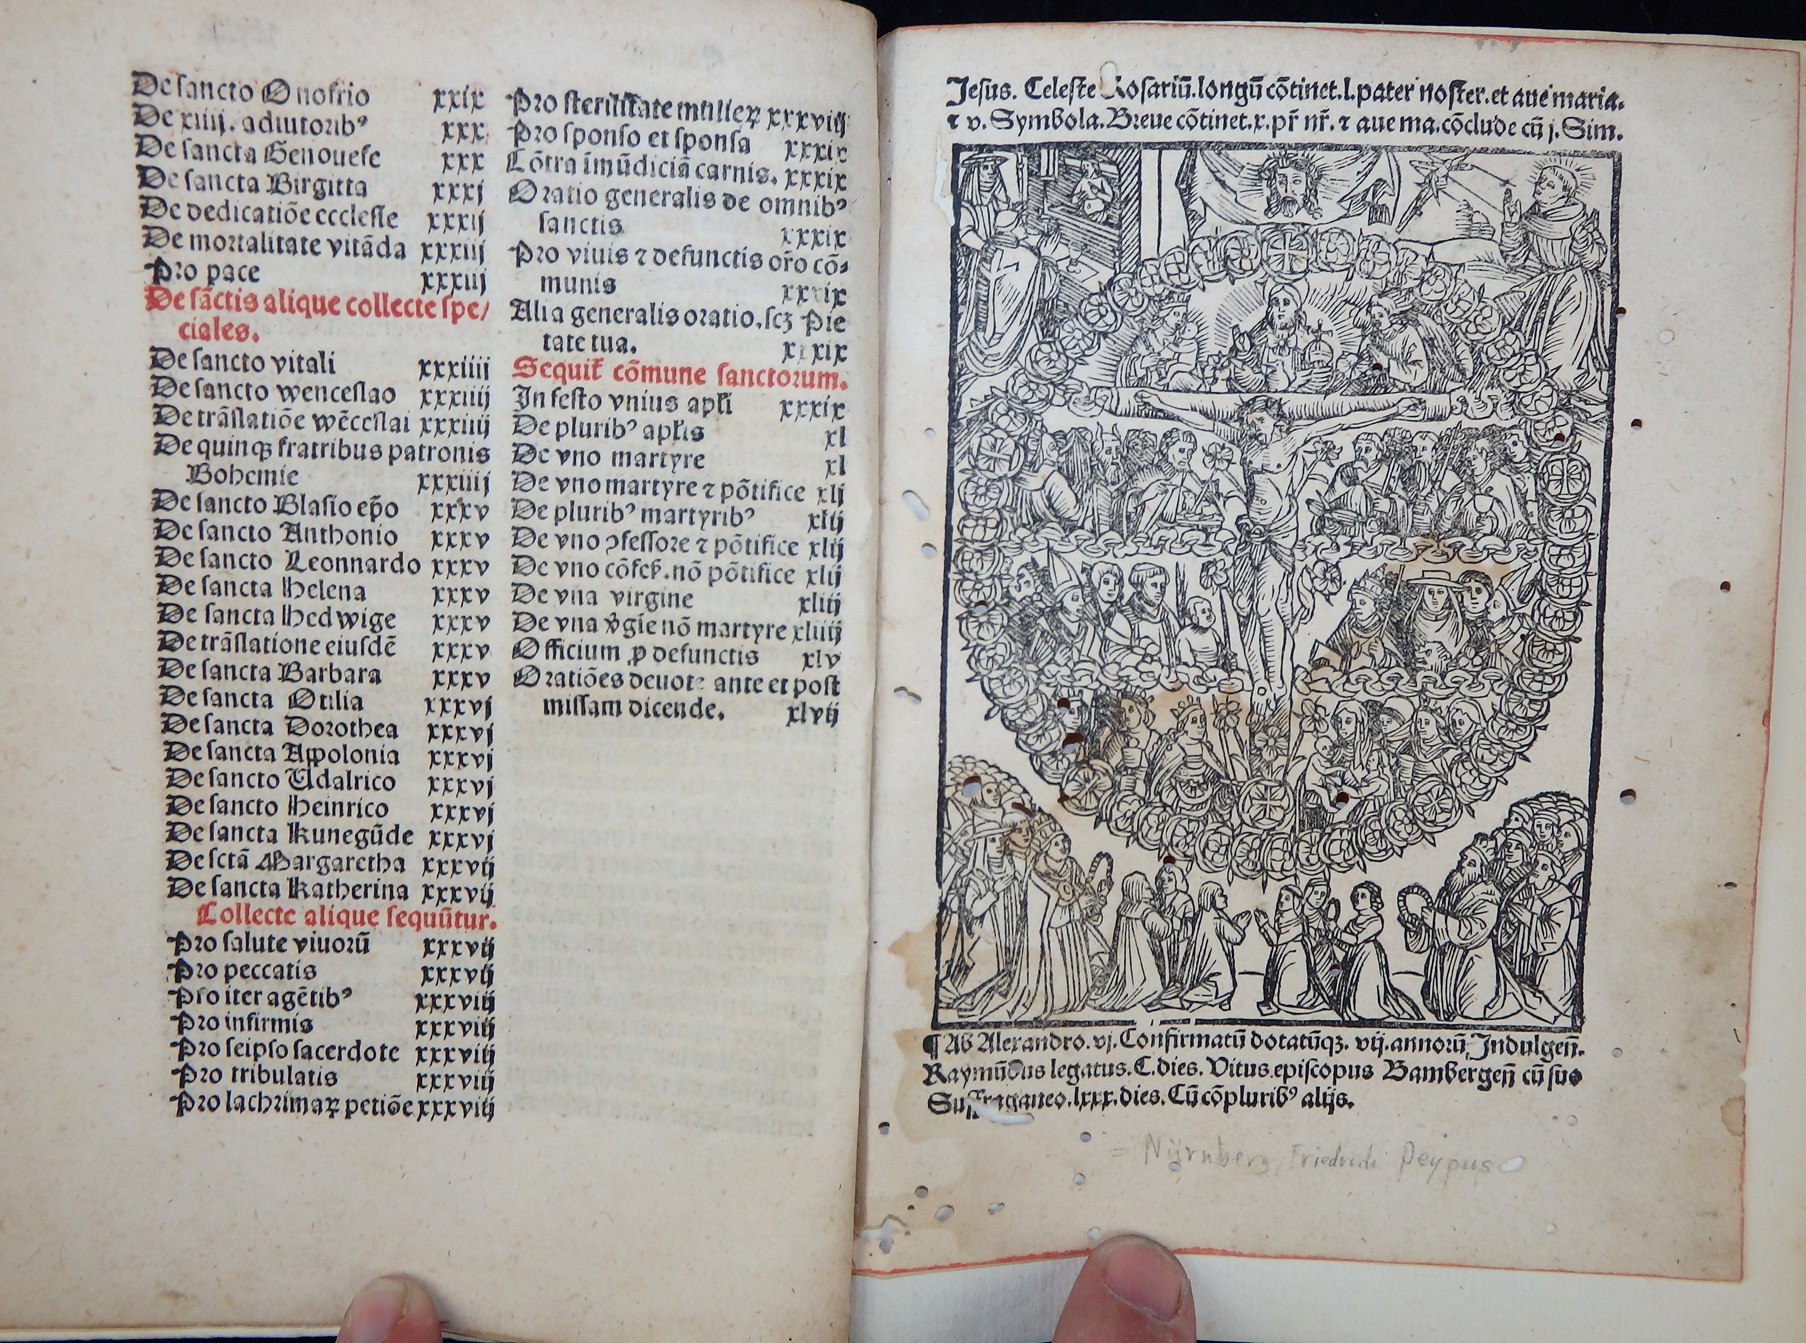 De sancto Onofrio xxix
De xiiij. adiutoribꝰ xxx
De sancta Genouefe xxx
De sancta Birgitta xxxj
De dedicatiõe ecclesie xxxij
De mortalitate vitãda xxxiij
Pro pace xxxiij
De sãctis alique collecte spe/
ciales.
De sancto vitali xxxiiij
De sancto wenceslao xxxiiij
De trãslatiõe wẽceslai xxxiiij
De quinqꝫ fratribus patronis
Bohemie xxxiiij
De sancto Blasio ep̃o xxxv
De sancto Anthonio xxxv
De sancto Leonnardo xxxv
De sancta Helena xxxv
De sancta Hedwige xxxv
De trãslatione eiusdẽ xxxv
De sancta Barbara xxxv
De sancta Otilia xxxvj
De sancta Dorothea xxxvj
De sancta Appolonia xxxvj
De sancto Udalrico xxxvj
De sancto Heinrico xxxvj
De sancta Kunegũde xxxvj
De sctã Margaretha xxxvij
De sancta Katherina xxxvij
Collecte alique sequũtur.
Pro salute viuorũ xxxvij
Pro peccatis xxxvij
Pro iter agẽtibꝰ xxxviij
Pro infirmis xxxviij
Pro seipso sacerdote xxxviij
Pro tribulatis xxxviij
Pro lachrimaꝝ petiõe xxxviij
Pro sterilitate mulieꝝ xxxviij
Pro sponso et sponsa xxxix
Cõtra ĩmũdiciã carnis. xxxix
Oratio generalis de omnibꝰ
sanctis xxxix
Pro viuis ⁊ defunctis or̃o cõ-
munis xxxix
Alia generalis oratio.scꝫ Pie
tate tua. xxxix
Sequit᷑ cõmune sanctorum.
In festo vnius apl̃i xxxix
De pluribꝰ apl̃is xl
De vno martyre xl
De vno martyre ⁊ põtifice xlj
De pluribꝰ martyribꝰ xlij
De vno ꝯfessore ⁊ põtifice xlij
De vno cõfes̃.nõ põtifice xlij
De vna virgine xliij
De vna v̾gĩe nõ martyre xliiij
Officium ꝓ defunctis xlv
Oratiões deuote ante et post
missam dicende. xlvij
Jesus. Celeste Rosariũ.longũ cõtinet.l.pater noster.et aue maria.
⁊ v. Symbola.Breue cõtinet.x.pr̃ nr̃. ⁊ aue ma.cõclude cũ j.Sim.
¶ Ab Alexandro.vj.Confirmatũ dotatũqꝫ. vij.annorũ Indulgeñ.
Raymũdus legatus.C.dies.Vitus.episcopus Bambergeñ cũ suo
Suffraganeo.lxxx.dies.Cũ cõpluribꝰ alijs.
= Nürnberg, Friedrich Peypus